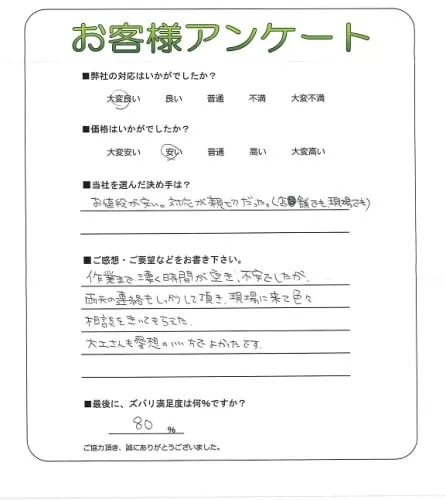 お客様アンケート
■弊社の対応はいかがでしたか？
大変良い 良い 普通 不満 大変不満
■価格はいかがでしたか？
大変安い 安い 普通 高い 大変高い
■当社を選んだ決め手は？
お値段が安い。対応が親切だった。(店舗でも、現場でも)
■ご感想・ご要望などをお書き下さい。
作業まで凄く時間が空き、不安でしたが、
雨天の連絡もしっかりして頂き、現場に来て色々
相談をきいてもらえた。
大工さんも愛想のいい方でよかったです。
■最後に、ズバリ満足度は何%ですか？
80 %
ご協力頂き、誠にありがとうございました。